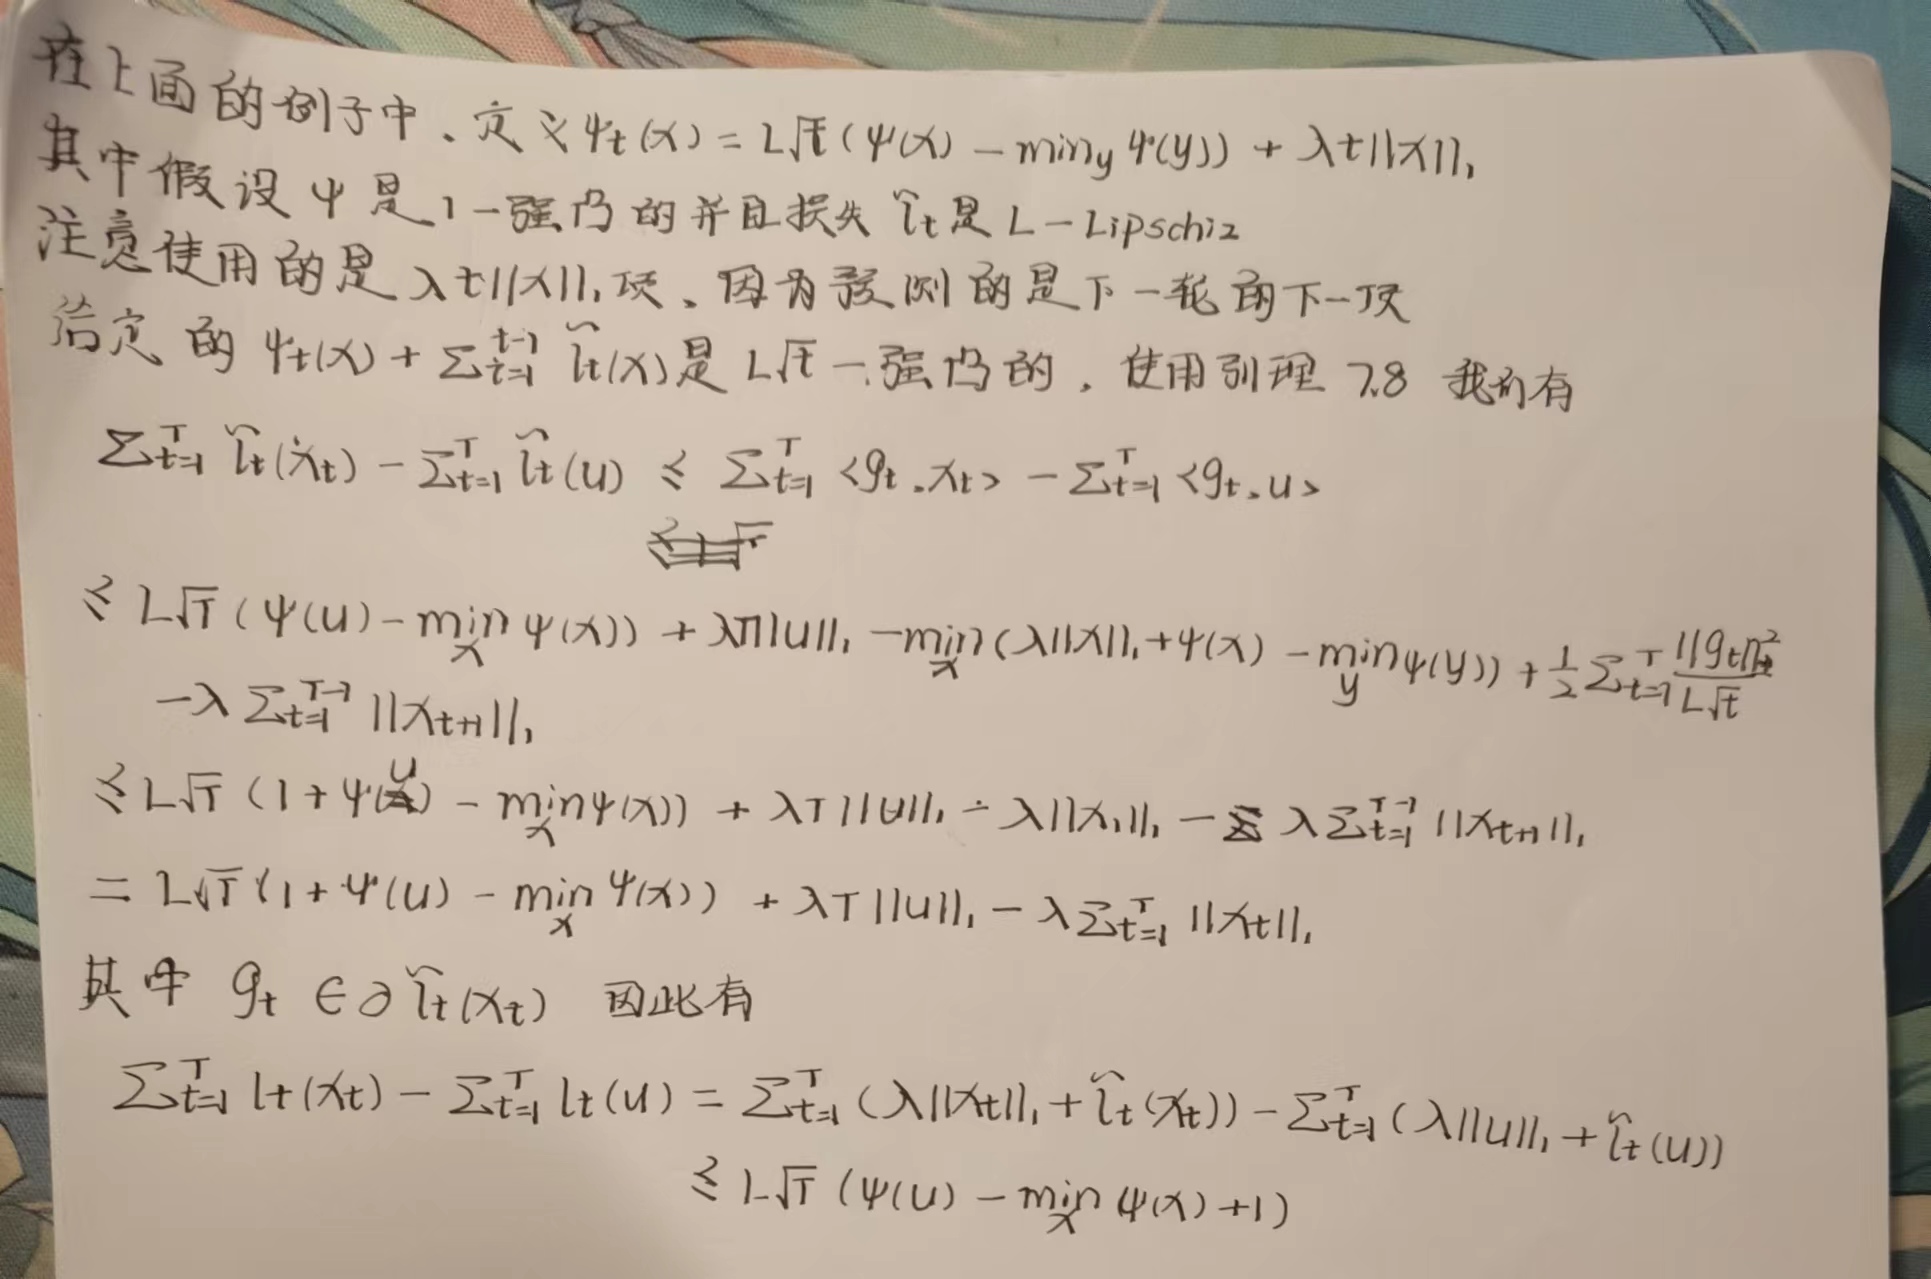 在上面的例子中、定义 ψt(x) = L√t (ψ(x) − min_y ψ(y)) + λt||x||₁
其中假设 ψ 是 1-强凸的并且损失 l̃t 是 L-Lipschiz
注意使用的是 λt||x||₁ 项、因为预测的是下一轮的下一项
给定的 ψt(x) + Σ_{t=1}^{t-1} l̃t(x) 是 L√t-强凸的，使用引理 7.8 我们有
Σ_{t=1}^{T} l̃t(xt) − Σ_{t=1}^{T} l̃t(u) ≤ Σ_{t=1}^{T} <gt, xt> − Σ_{t=1}^{T} <gt, u>
≤ L√T (ψ(u) − min_x ψ(x)) + λT||u||₁ − min_x (λ||x||₁ + ψ(x) − min_y ψ(y)) + 1/2 Σ_{t=1}^{T} ||gt||²/(L√t)
− λ Σ_{t=1}^{T-1} ||x_{t+1}||₁
≤ L√T (1 + ψ(u) − min_x ψ(x)) + λT||u||₁ − λ||x₁||₁ − λ Σ_{t=1}^{T-1} ||x_{t+1}||₁
= L√T (1 + ψ(u) − min_x ψ(x)) + λT||u||₁ − λ Σ_{t=1}^{T} ||xt||₁
其中 gt ∈ ∂l̃t(xt) 因此有
Σ_{t=1}^{T} lt(xt) − Σ_{t=1}^{T} lt(u) = Σ_{t=1}^{T} (λ||xt||₁ + l̃t(xt)) − Σ_{t=1}^{T} (λ||u||₁ + l̃t(u))
≤ L√T (ψ(u) − min_x ψ(x) + 1)